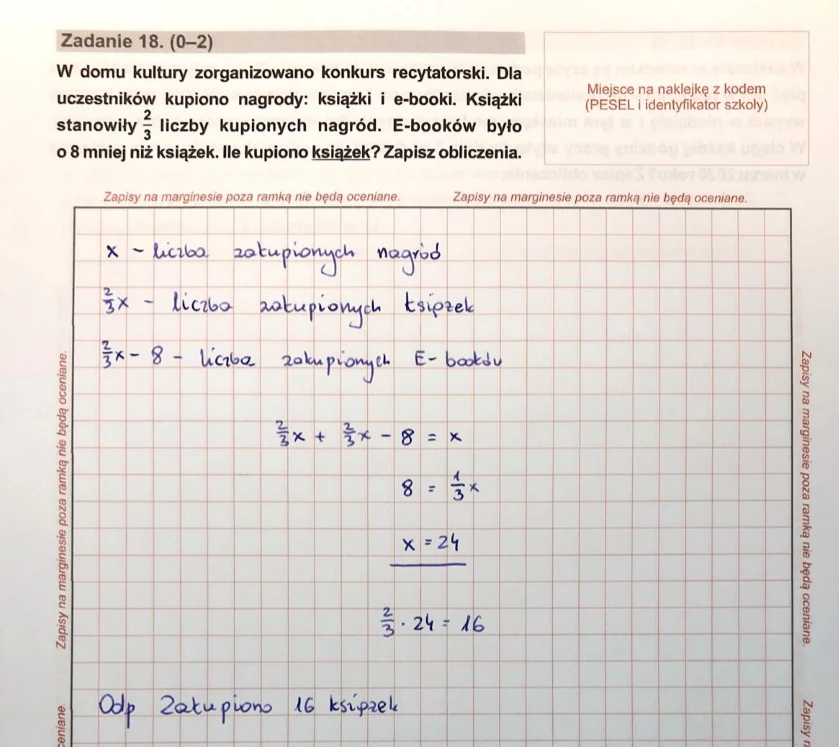 Zadanie 18. (0–2)
W domu kultury zorganizowano konkurs recytatorski. Dla
uczestników kupiono nagrody: książki i e-booki. Książki
stanowiły 2/3 liczby kupionych nagród. E-booków było
o 8 mniej niż książek. Ile kupiono książek? Zapisz obliczenia.
Miejsce na naklejkę z kodem
(PESEL i identyfikator szkoły)
Zapisy na marginesie poza ramką nie będą oceniane.
Zapisy na marginesie poza ramką nie będą oceniane.
x – liczba zakupionych nagród
2/3x – liczba zakupionych książek
2/3x – 8 – liczba zakupionych E-booków
2/3x + 2/3x – 8 = x
8 = 1/3x
x = 24
2/3 · 24 = 16
Odp Zakupiono 16 książek
Zapisy na marginesie poza ramką nie będą oceniane.
Zapisy na marginesie poza ramką nie będą oceniane.
ceniane.
Zapisy n